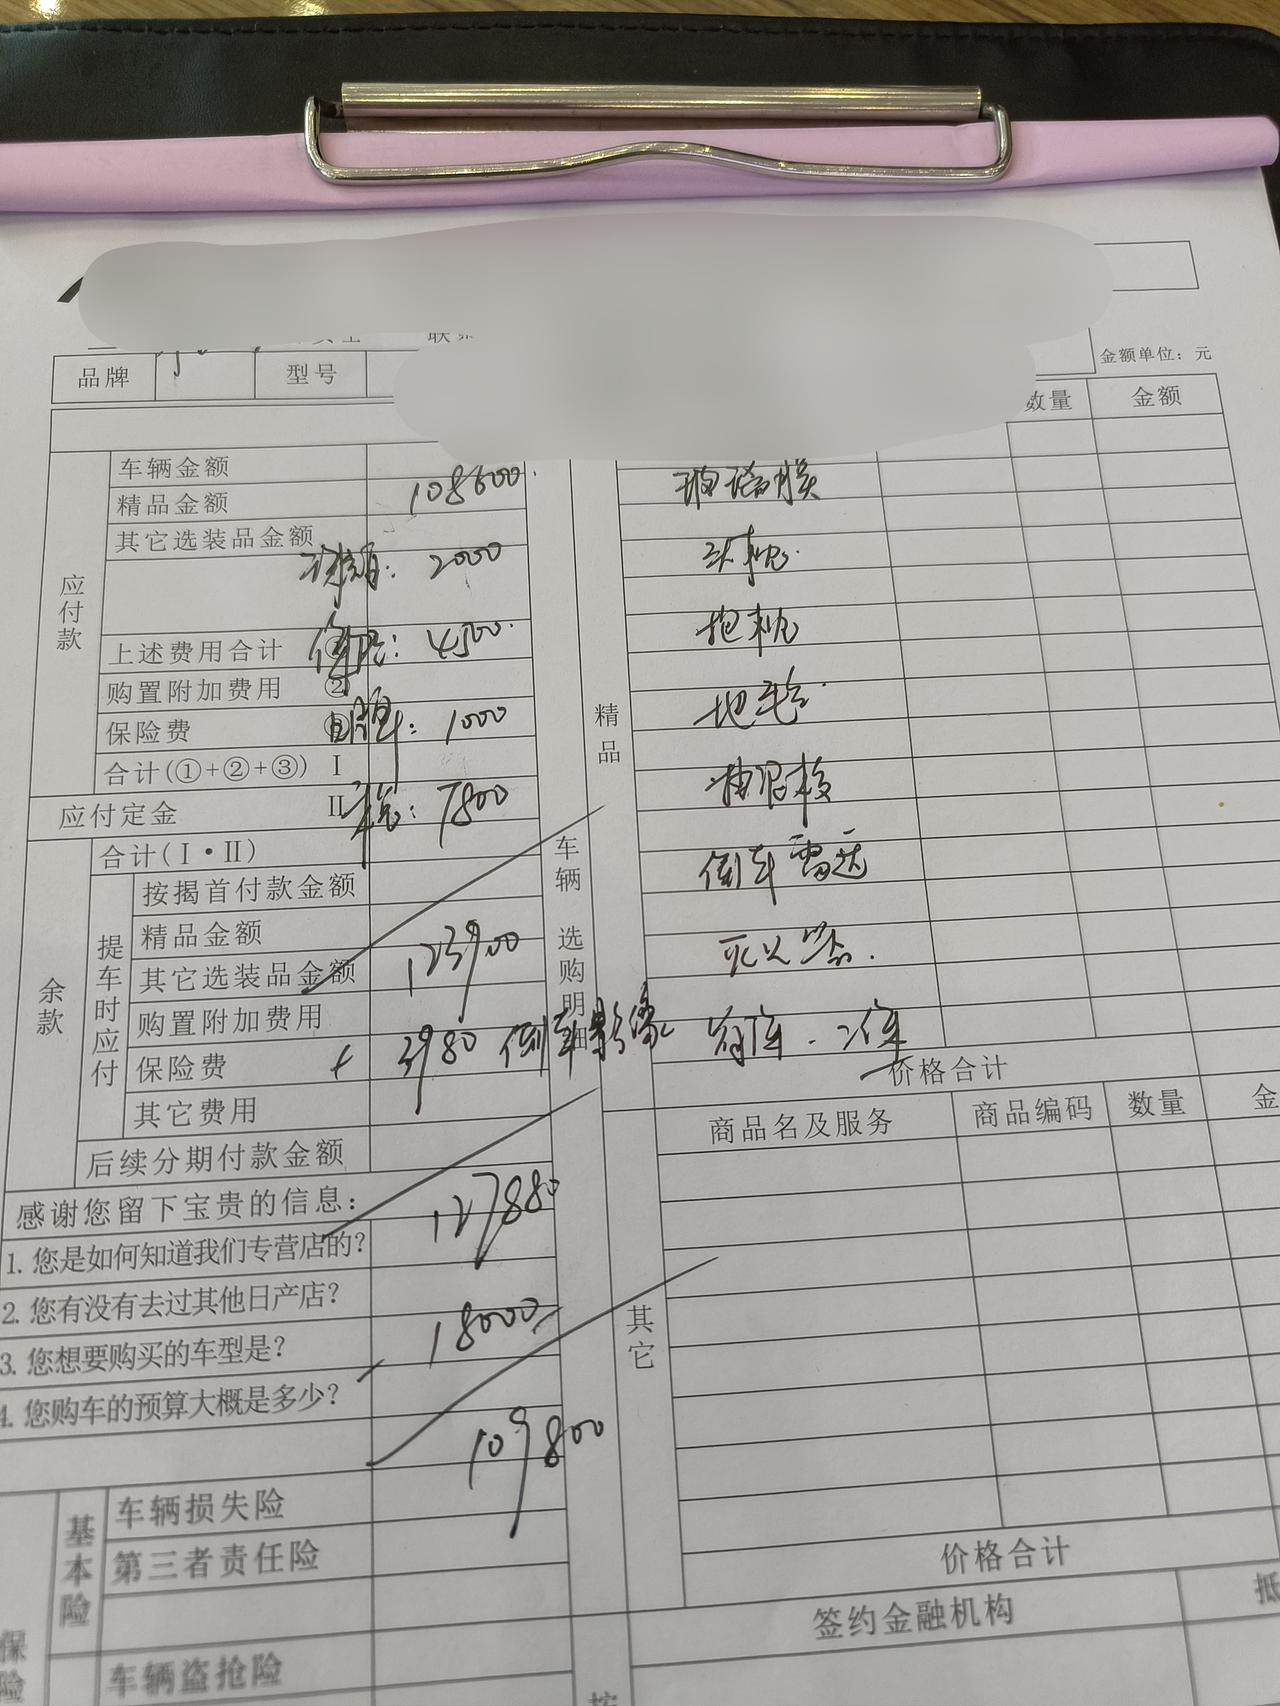 金额单位：元
品牌 型号
数量 金额
车辆金额
精品金额 108600.
其它选装品金额
2000
应付款
上述费用合计 ① 保险：4500.
购置附加费用 ②
保险费 ③ 1000
合计(①+②+③) Ⅰ
应付定金 Ⅱ 税：7800
合计(Ⅰ·Ⅱ)
余款
提车时应付
按揭首付款金额
精品金额
其它选装品金额 123900
购置附加费用
保险费 + 3980 倒车影像
其它费用
后续分期付款金额
感谢您留下宝贵的信息：
127880
1.您是如何知道我们专营店的？
2.您有没有去过其他日产店？
18000
3.您想要购买的车型是？
4.您购车的预算大概是多少？
109800
保险
基本险
车辆损失险
第三者责任险
车辆盗抢险
车辆选购明细
精品
玻璃膜
头枕.
抱枕
地毯.
倒车雷达
灭火器.
价格合计
其它
商品名及服务 商品编码 数量 金
价格合计
签约金融机构 抵
按